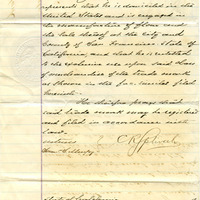 represents that he is domiciled in the
United States and is engaged in
the manufacture of gloves and
the sale thereof at the City and
County of San Francisco State of
California, and that he is entitled
to the exclusive use upon said class
of merchandise of the trade mark
as shown in the fac-simile filed
herewith.
He therefore prays that
said trade mark may be registered
and filed in accordance with
law.
witness
State of California